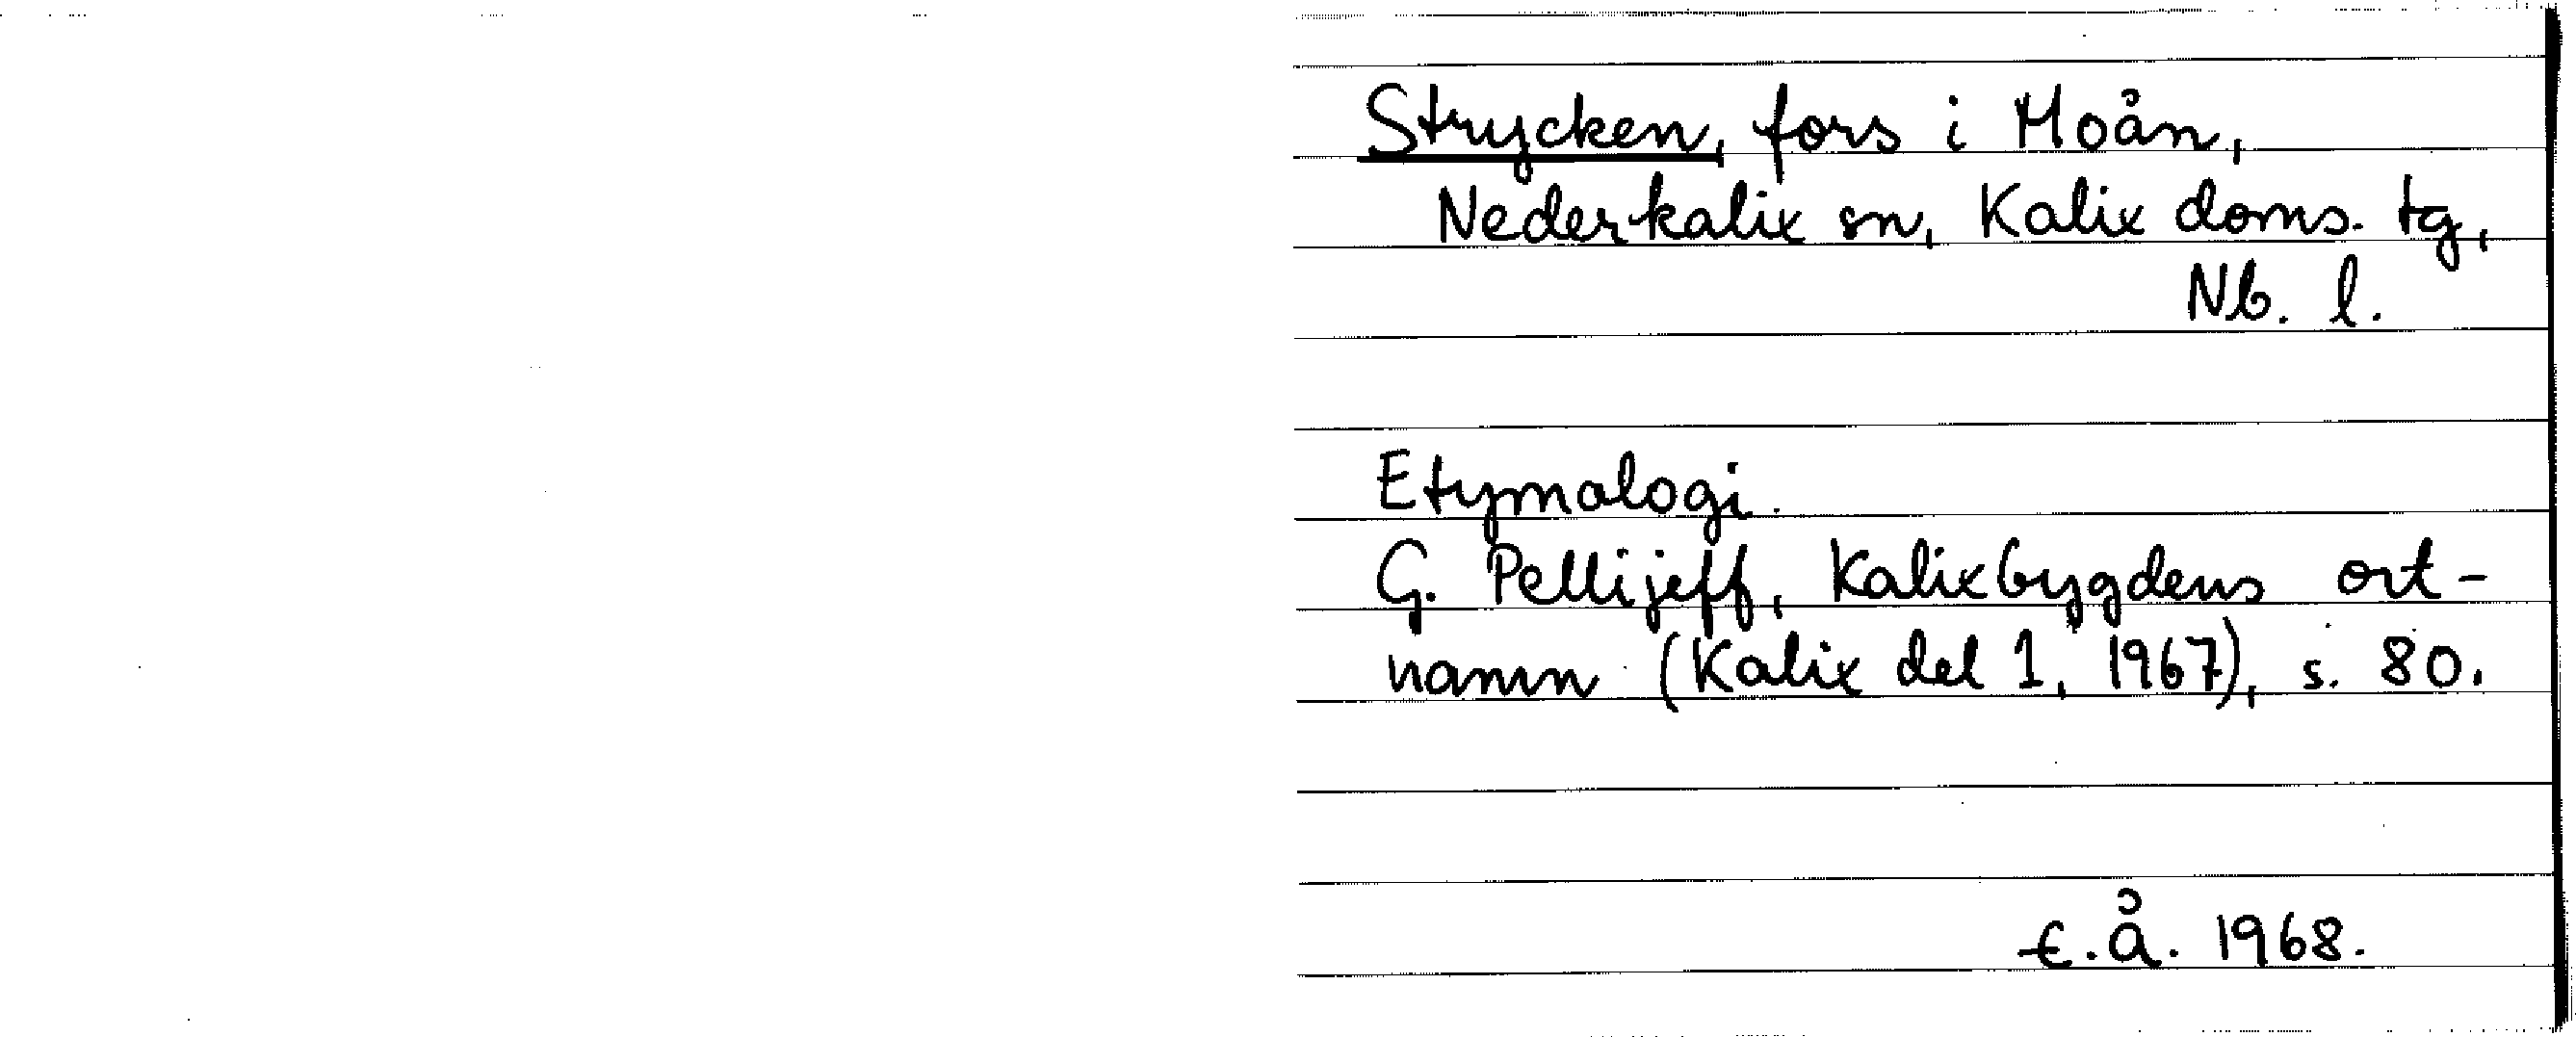 Strycken, fors i Moån,
Nederkalix sn, Kalix doms. tg,
Nb. l.
Etymologi.
G. Pellijeff, Kalixbygdens ort-
namn (Kalix del 1, 1967), s. 80.
E.Å. 1968.